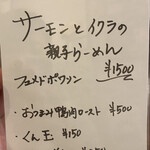 サーモンとイクラの
親子らーめん
フュメドポワソン
¥1500
・おつまみ鴨肉ロースト ¥500
・くん玉 ¥150